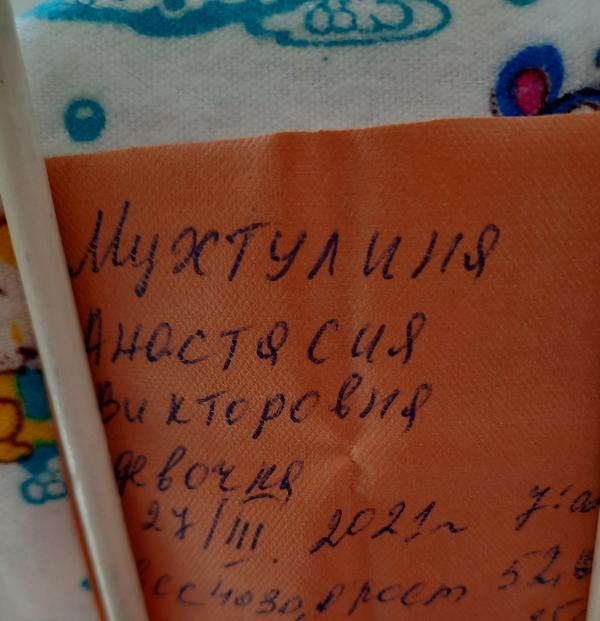 Мухтулиня
Анастасия
Викторовня
девочка
27/III. 2021г
вес 4030, рост 52,